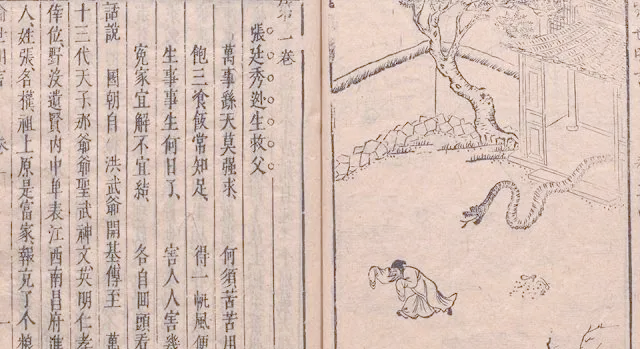 第一卷
張廷秀迯生救父
萬事繇天莫强求、何須苦苦用
飽三飡飯常知足、得一帆風便
生事事生何日了、害人人害幾
冤家宜解不宜結、各自回頭看
話說 國朝自 洪武爺開基傳至 萬
十三代天子那爺爺聖武神文英明仁孝
倖位野没遺賢内中单表江西南昌府進
人姓張名權祖上原是富家報充了个粮
喻世明言